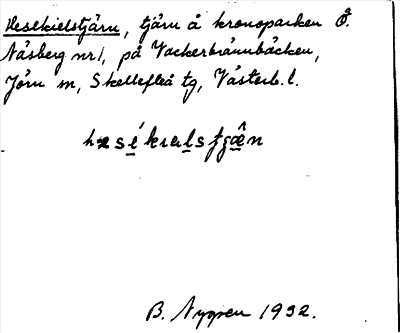 Hesekielstjärn, tjärn å kronoparken Ö.
Näsberg nr 1, på Vackerbrännbäcken,
Jörn sn, Skellefteå tg, Västerb. l.
B. Nygren 1932.